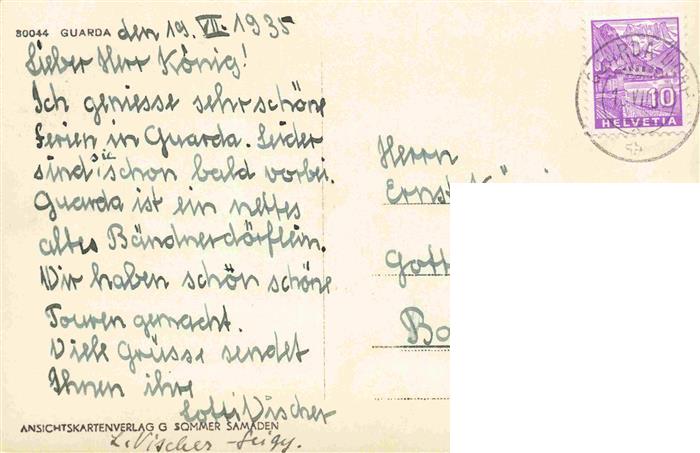 80044 GUARDA den 19. VII. 1935
Lieber Herr König!
Ich geniesse sehr schöne
Ferien in Guarda. Leider
sind sie schon bald vorbei.
Guarda ist ein nettes
altes Bündnerdörflein.
Wir haben schön schöne
Touren gemacht.
Viele Grüsse sendet
Ihnen ihre
Lotti Vischer
ANSICHTSKARTENVERLAG G SOMMER SAMADEN
L. Vischer-Geigy.
10
HELVETIA
GUARDA
Herrn
Ernst